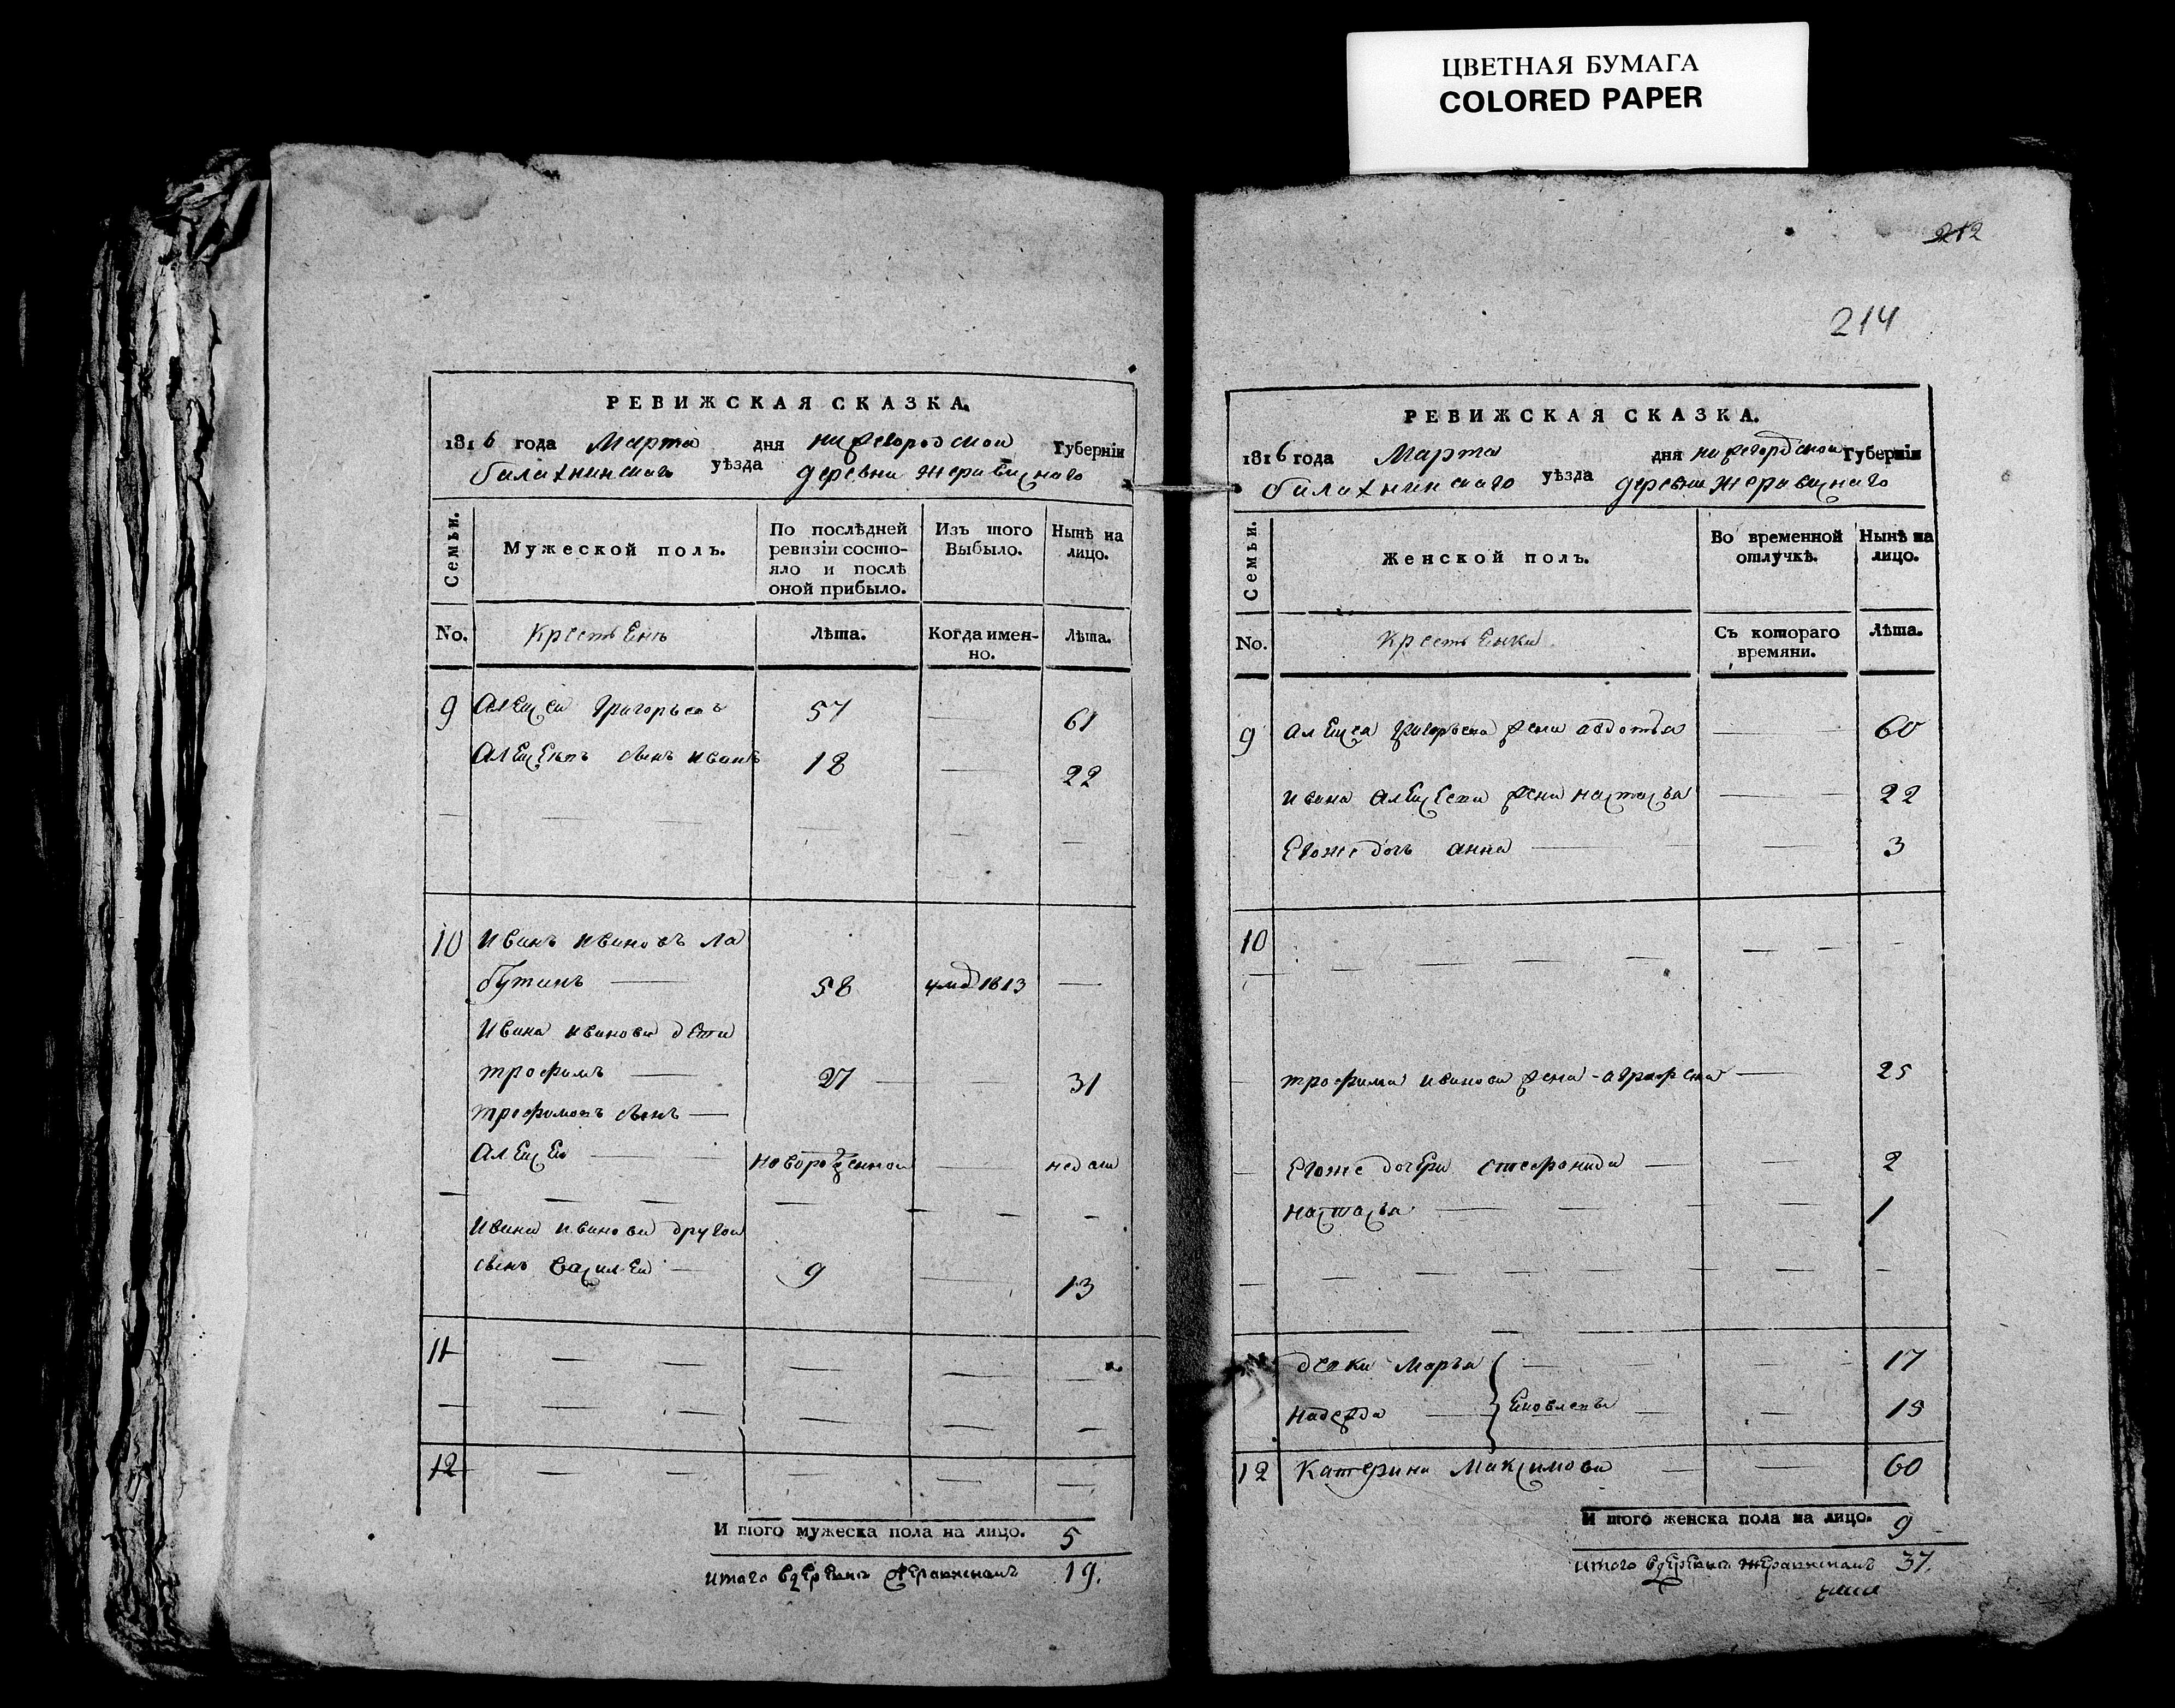 ЦВЕТНАЯ БУМАГА
COLORED PAPER
РЕВИЖСКАЯ СКАЗКА.
1816 года Марта дня нижегородской Губерніи
балахнинскаго уѣзда деревни
Семьи.
Мужеской полъ.
По послѣдней ревизіи состояло и послѣ оной прибыло.
Изъ того Выбыло.
Нынѣ на лицо.
No.
крестьенъ
Лѣта.
Когда именно.
Лѣта.
9 Алексеи Григорьевъ 57 — 61
Алексеевъ сынъ иванъ 18 — 22
10 Иванъ ивановъ ла
бутинъ — 58 умр 1813 —
Ивана иванова дети
трофимъ — 27 — — 31
трофимовъ сынъ —
Алексеи — новорожденной —
Ивана иванова другои
сынъ василеи — 9 — 13
11
12
И того мужеска пола на лицо. 5
итого 19.
212
214
РЕВИЖСКАЯ СКАЗКА.
1816 года Марта дня нижегородской Губерніи
балахнинскаго уѣзда деревни
Семьи.
Женской полъ.
Во временной отлучкѣ.
Нынѣ на лицо.
No.
крестьенки
Съ котораго времяни.
Лѣта.
9 Алексея григорьева жена авдотья — 60
ивана алексеева жена настасья — 22
Егоже дочь анна — 3
10
трофима иванова жена аграфена — 25
Егоже дочери стефанида — 2
настасья — 1
девки Марья — 17
надежда — Яковлевы — 15
12 Катерина Максимова — 60
И того женска пола на лицо. 9
итого 37.